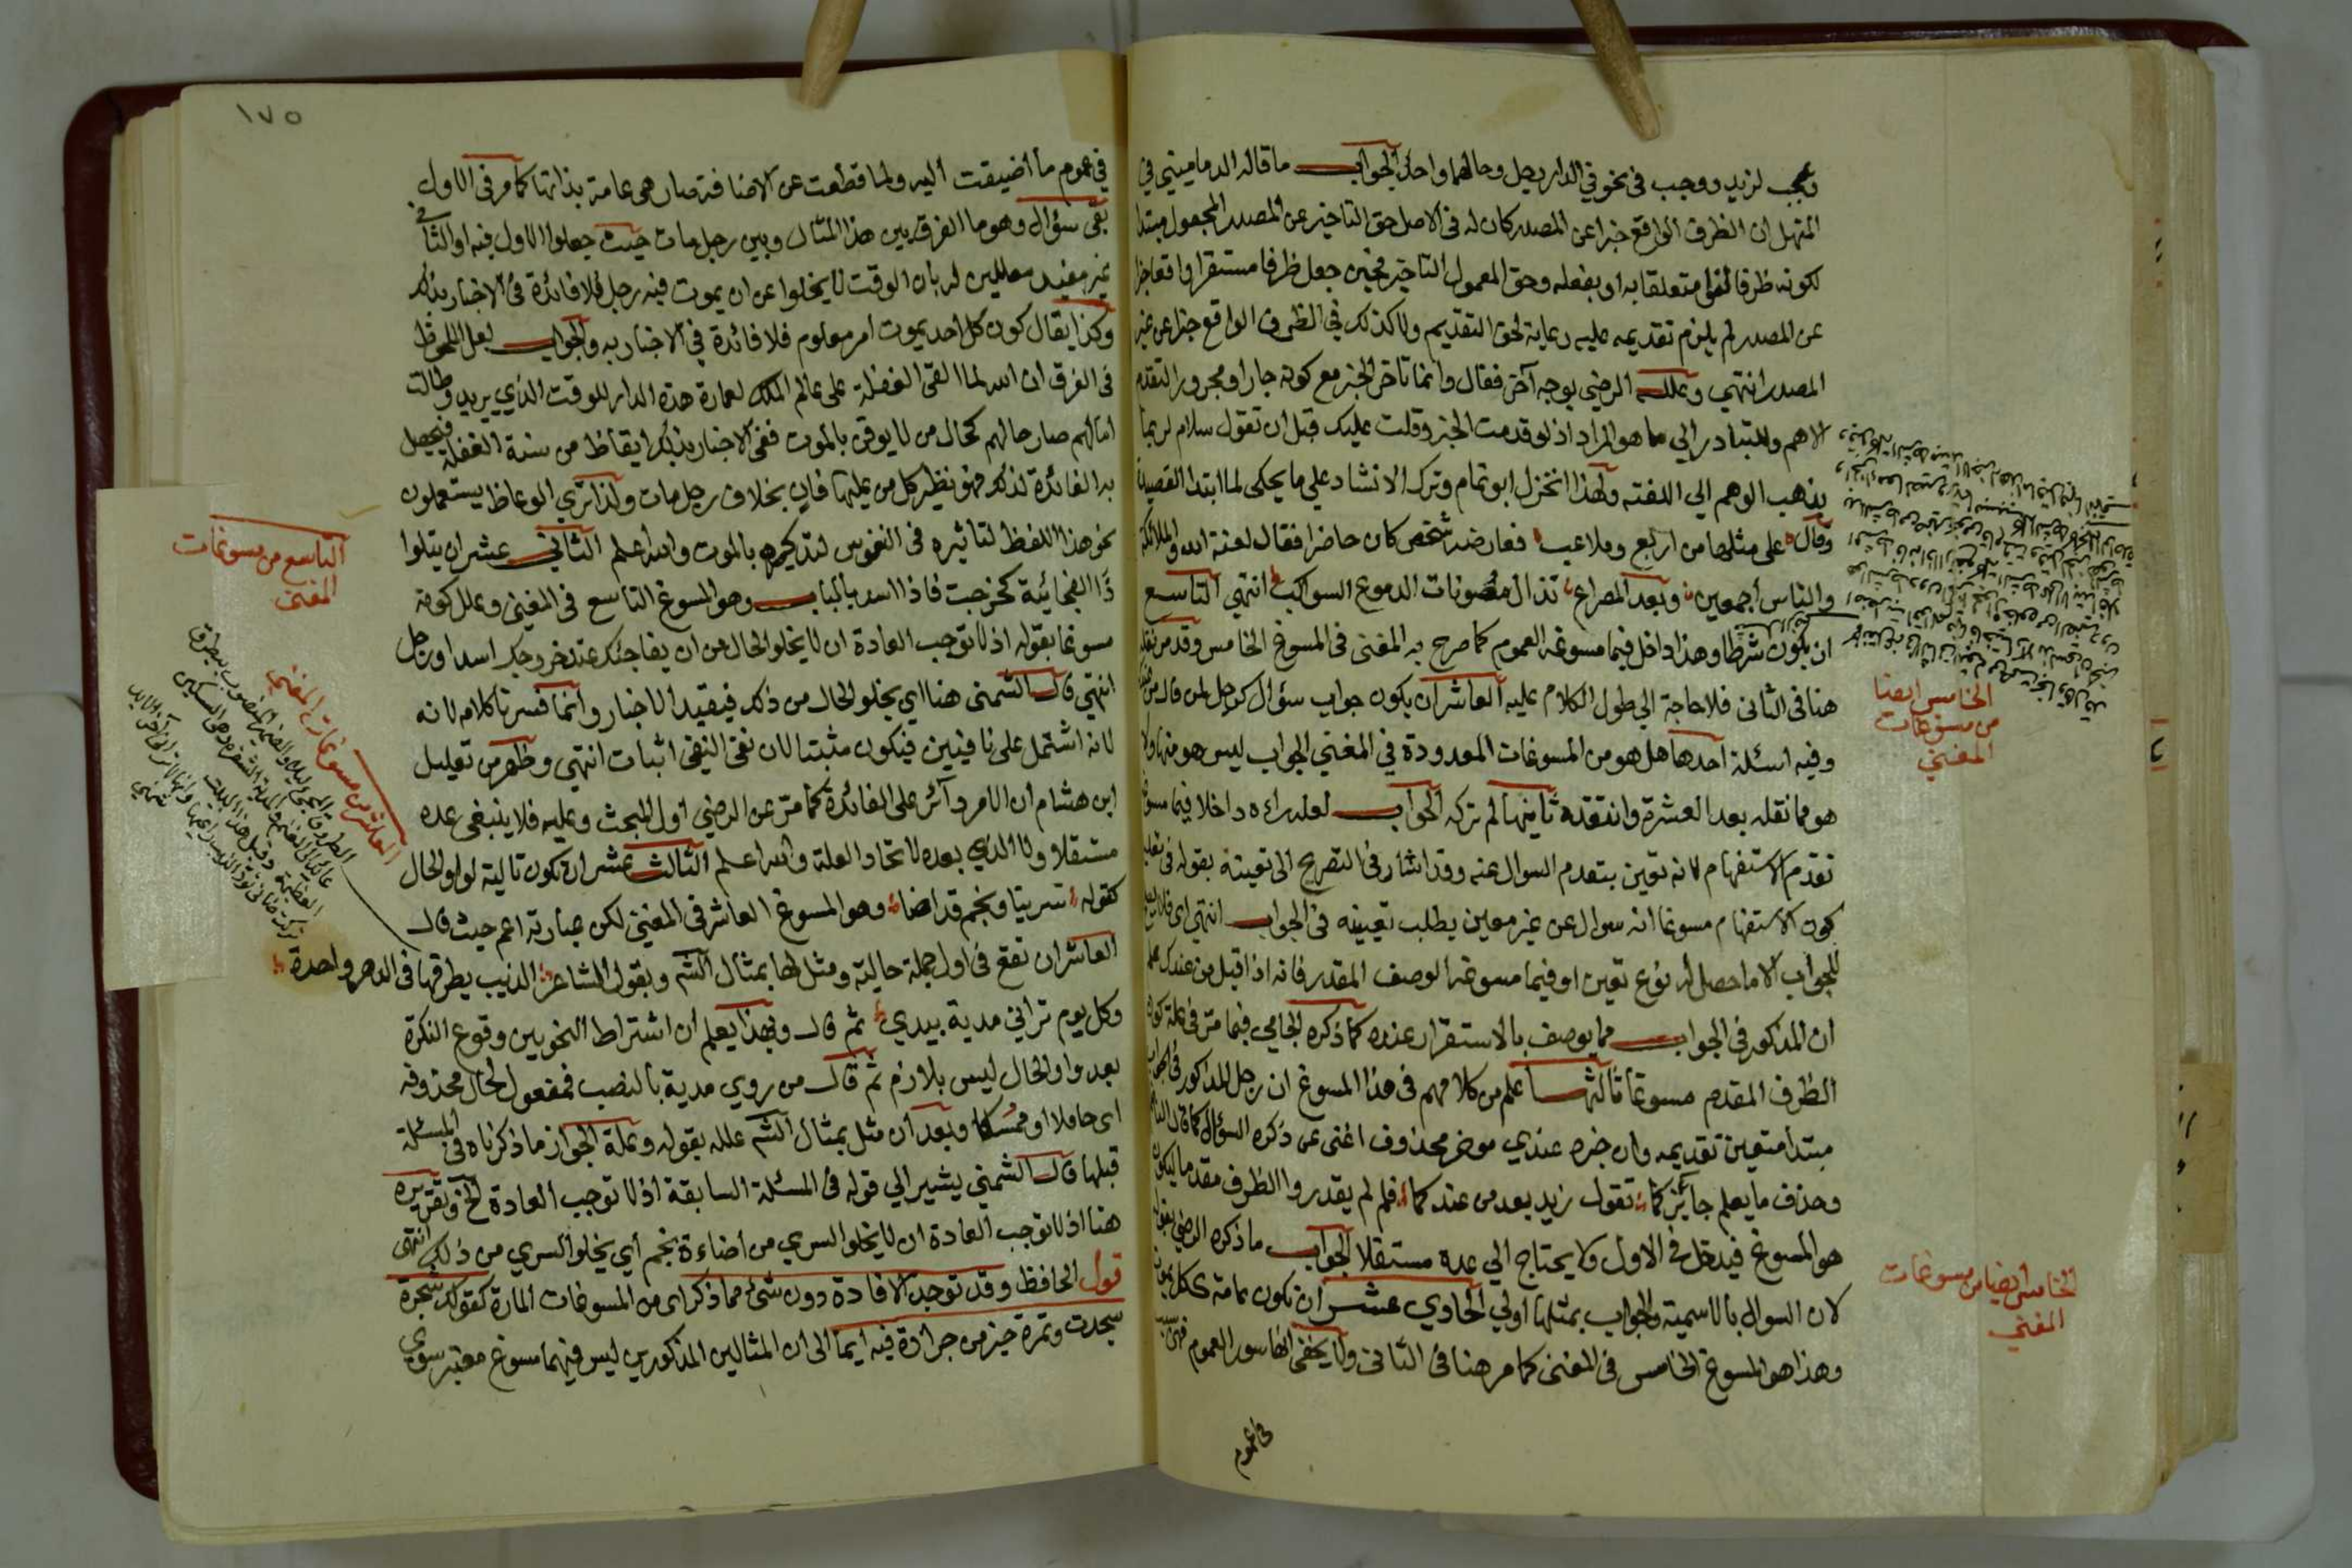 وعجب لزيد ووجب في نحو في الدار رجل وحالهما واحد الجواب ما قاله الدماميني في
المنهل ان الظرف الواقع خبرا عن المصدر كان له في الاصل حق التاخير عن المصدر المجعول مبتدا
لكونه ظرفا لغوا متعلقا به او بفعله وحق المعمول التاخير فحين جعل ظرفا مستقرا واقعا خبرا
عن المصدر لم يلزم تقديمه عليه رعاية لحق التقديم ولا كذلك في الظرف الواقع خبرا عن غير
المصدر انتهي وعلله الرضي بوجه آخر فقال وانما تاخر الخبر مع كونه جارا ومجرورا لتقدم
الاهم وللتبادر الي ما هو المراد اذ لو قدمت الخبر وقلت عليك قبل ان تقول سلام لربما
يذهب الوهم الي اللعنة ولهذا انخزل ابو تمام وترك الانشاد علي ما يحكى لما ابتدا القصيدة
وقال على مثلها من اربع وملاعب فعارضه شخص كان حاضرا فقال لعنة الله والملائكة
والناس أجمعين وبعد المصراع تذال مصونات الدموع السواكب انتهي التاسع
ان يكون شرطا وهذا داخل فيما مسوغه العموم كما صرح به المغنى في المسوغ الخامس وقد مر نقله
هنا في الثانى فلا حاجة الي طول الكلام عليه العاشر ان يكون جواب سؤال كرجل لمن قال من عندك
وفيه اسئلة احدها هل هو من المسوغات المعدودة في المغني الجواب ليس هو منها ولا
هو مما نقله بعد العشرة وانتقده ثانيها لم تركه الجواب لعله راءه داخلا فيما مسوغه
تقدم الاستفهام لانه تعين بتقدم السوال عنه وقد اشار في التصريح الى تعينه بقوله في تعليل
كون الاستفهام مسوغا انه سوال عن غير معين يطلب تعيينه في الجواب انتهي اى فلا
للجواب الا ما حصل له نوع تعين او فيما مسوغه الوصف المقدر فانه اذا قيل من عندك علم
ان المذكور في الجواب مما يوصف بالاستقرار عنده كما ذكره الجامي فيما مر في علة كون
الظرف المقدم مسوغا ثالثها علم من كلامهم في هذا المسوغ ان رجل المذكور في الجواب
مبتدا متعين تقديمه وان خبره عندي موخر محذوف اغنى عن ذكره السؤال كما قال الناظم
وحذف ما يعلم جايز كما تقول زيد بعد من عندكما فلم لم يقدروا الظرف مقدما ليكون
هو المسوغ فيدخل في الاول ولا يحتاج الي عده مستقلا الجواب ما ذكره الرضي بقوله
لان السوال بالاسمية والجواب بمثلها اولي الحادي عشر ان تكون عامة ككل يموت
وهذا هو المسوغ الخامس في المغنى كما مر هنا في الثانى ولا يخفى انها سور العموم
في عموم
الخامس ايضا
من مسوغات
المغني
الخامس ايضا من مسوغات
المغني
١٧٥
في عموم ما أضيفت اليه ولما قطعت عن الاضافة صار هى عامة بذاتها كما مر في الاول
بقى سؤال وهو ما الفرق بين هذا المثال وبين رجل مات حيث جعلوا الاول فيه او الثاني
غير مفيد معللين له بان الوقت لا يخلوا عن ان يموت فيه رجل فلا فائدة في الاخبار بذلك
وكذا يقال كون كل احد يموت امر معلوم فلا فائدة في الاخبار به والجواب لعل الملحوظ
في الفرق ان الله لما القى الغفلة على عالم الملك لعمارة هذة الدار للوقت الذي يريد وطالت
امالهم صار حالهم كحال من لا يوقن بالموت ففى الاخبار بذلك ايقاظ من سنة الغفلة فيحصل
به الفائدة لذلك فهو نظير كل من عليها فان بخلاف رجل مات ولذا تري الوعاظ يستعملون
نحو هذا اللفظ لتاثيره في النفوس لتذكيرهم بالموت والله اعلم الثانى عشر ان يتلوا
ذا الفجائية كخرجت فاذا اسد بالباب وهو المسوغ التاسع في المغنى وعلل كونه
مسوغا بقوله اذ لا توجب العادة ان لا يخلو الحال من ان يفاجئك عند خروجك اسد او رجل
انتهي قال الشمني هنا اي يخلو الحال من ذلك فيفيد الاخبار وانما فسرنا كلامه لانه
لانه اشتمل على نافيين فيكون مثبتا لان نفى النفي اثبات انتهي وظهر من تعليل
ابن هشام ان الامر دائر على الفائدة كما مر عن الرضي اول المبحث وعليه فلا ينبغى عده
مستقلا ولا الذي بعده لاتحاد العلة والله اعلم الثالث عشر ان تكون تالية لواو الحال
كقوله سرينا ونجم قد اضاء وهو المسوغ العاشر في المغنى لكن عبارته اعم حيث قال
العاشر ان تقع في اول جملة حالية ومثل لها بمثال الشم وبقول الشاعر الذيب يطرقها في الدهر واحدة
وكل يوم تراني مدية بيدي ثم قال وبهذا يعلم ان اشتراط النحويين وقوع النكرة
بعد واو الحال ليس بلازم ثم قال من روي مدية بالنصب فمفعول لحال محذوفه
اى حاملا او ممسكا وبعد ان مثل بمثال الشم علله بقوله وعلة الجواز ما ذكرناه في المسئلة
قبلها قال الشمني يشير الي قوله في المسئلة السابقة اذ لا توجب العادة الخ وتقريره
هنا اذ لا توجب العادة ان لا يخلو السري من اضاءة نجم أي يخلو السري من ذلك انتهى
قول الحافظ وقد توجد الافادة دون شئ مما ذكر اى من المسوغات المارة كقولك شجرة
سجدت وتمرة خير من جرادة فيه ايما الى ان المثالين المذكورين ليس فيهما مسوغ معتبر سوي
التاسع من مسوغات
المغنى
العاشر من مسوغات المغني